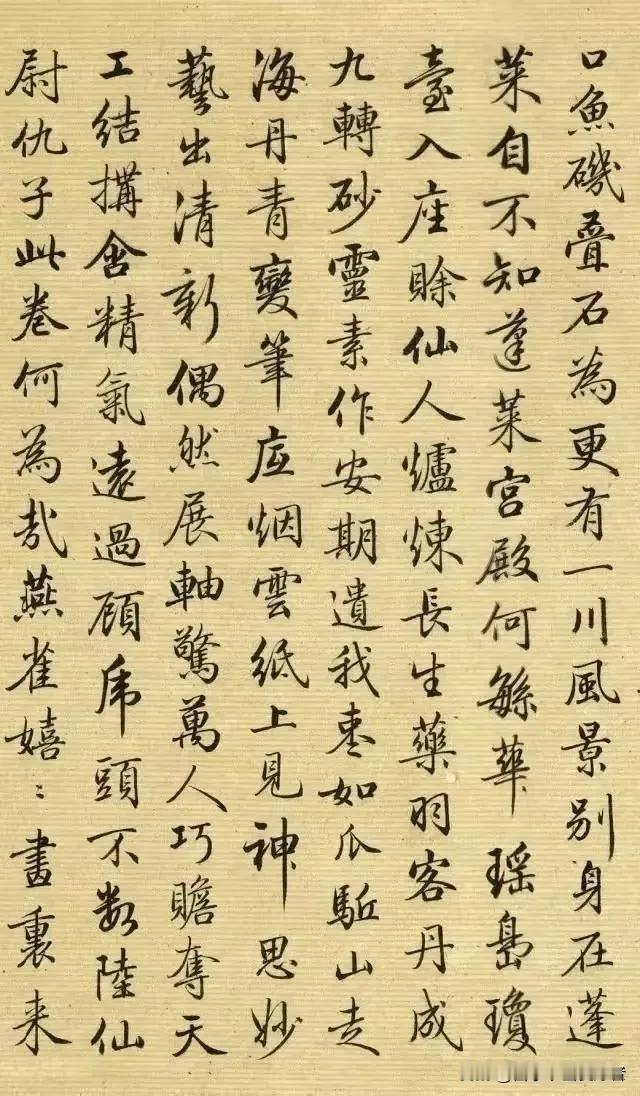 口魚磯叠石為更有一川風景別身在蓬
萊自不知蓬萊宮殿何繇華瑶島瓊
臺入座賒仙人爐煉長生藥羽客丹成
九轉砂靈素作安期遺我棗如瓜駈山走
海丹青變筆底烟雲紙上見神思妙
藝出清新偶然展軸驚萬人巧贍奪天
工結搆含精氣遠過顧虎頭不數陸仙
尉仇子此卷何為哉燕雀嬉〻畫裏来